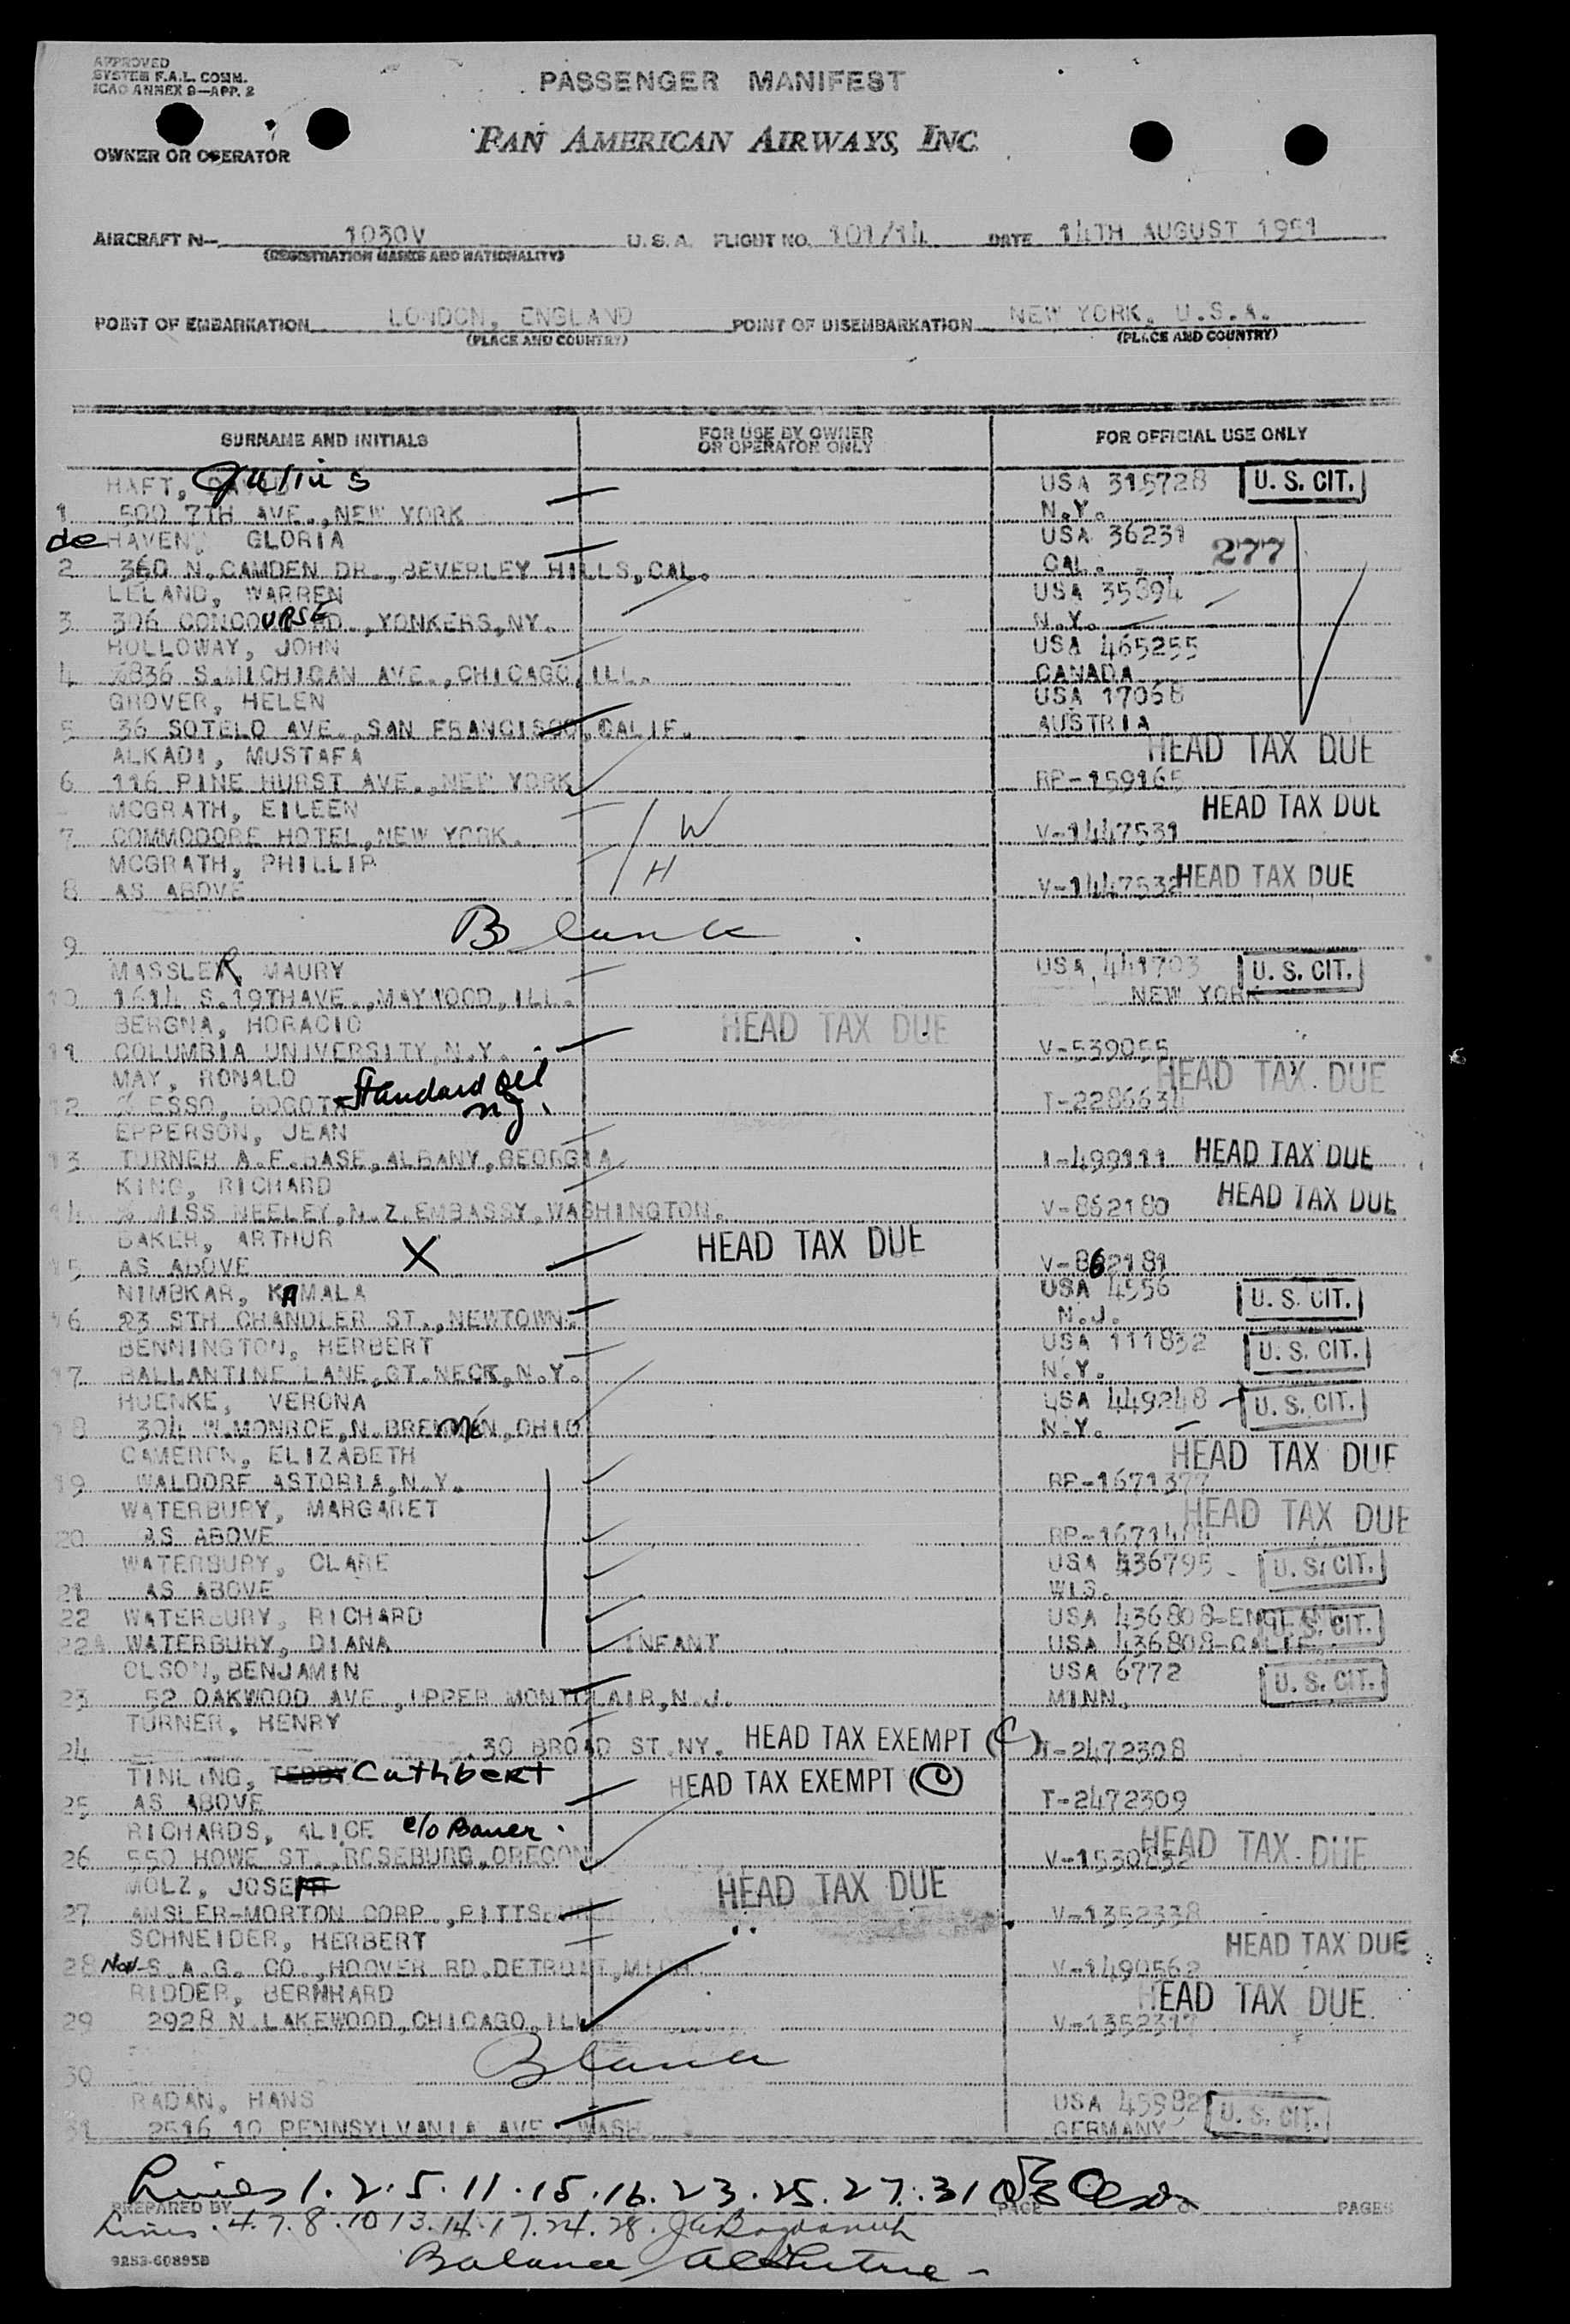 APPROVED
SYSTEM F.A.L. COMM.
ICAO ANNEX 9—APP. 2
PASSENGER MANIFEST
PAN AMERICAN AIRWAYS, INC
OWNER OR OPERATOR
AIRCRAFT N— 1030V U.S.A. FLIGHT NO. 101/14 DATE 14TH AUGUST 1951
(REGISTRATION MARKS AND NATIONALITY)
POINT OF EMBARKATION LONDON, ENGLAND POINT OF DISEMBARKATION NEW YORK, U.S.A.
(PLACE AND COUNTRY) (PLACE AND COUNTRY)
SURNAME AND INITIALS FOR USE BY OWNER OR OPERATOR ONLY FOR OFFICIAL USE ONLY
HAFT, Julius USA 315728 U. S. CIT.
1 500 7TH AVE.,NEW YORK N.Y.
de HAVEN, GLORIA USA 36231
2 360 N.CAMDEN DR.,BEVERLEY HILLS,CAL. CAL. 277
LELAND, WARREN USA 35894
3 306 CONCOURSE RD.,YONKERS,NY. N.Y.
HOLLOWAY, JOHN USA 465255
4 S.MICHIGAN AVE.,CHICAGO,ILL. CANADA
GROVER, HELEN USA 17068
5 36 SOTELO AVE.,SAN FRANCISCO,CALIF. AUSTRIA
ALKADI, MUSTAFA HEAD TAX DUE
6 116 PINE HURST AVE.,NEW YORK RP-159165
MCGRATH, EILEEN HEAD TAX DUE
7 COMMODORE HOTEL,NEW YORK. W V-1447531
MCGRATH, PHILLIP H
8 AS ABOVE V-1447532 HEAD TAX DUE
9 Blank
MASSLER, MAURY USA 441703 U. S. CIT.
10 1614 S.19THAVE.,MAYWOOD,ILL. NEW YORK
BERGNA, HORACIO HEAD TAX DUE
11 COLUMBIA UNIVERSITY,N.Y. V-539055
MAY, RONALD Standard Oil HEAD TAX DUE
12 % ESSO, BOGOTA N.J. T-2286634
EPPERSON, JEAN
13 TURNER A.F.BASE,ALBANY,GEORGIA I-499111 HEAD TAX DUE
KING, RICHARD
14 % MISS NEELEY,N.Z.EMBASSY,WASHINGTON. V-862180 HEAD TAX DUE
BAKER, ARTHUR X HEAD TAX DUE
15 AS ABOVE V-862181
NIMBKAR, KAMALA USA 4556 U. S. CIT.
16 23 STH CHANDLER ST.,NEWTOWN. N.J.
BENNINGTON, HERBERT USA 111832 U. S. CIT.
17 BALLANTINE LANE,GT.NECK,N.Y. N.Y.
HUENKE, VERONA USA 449248 U. S. CIT.
18 304 W.MONROE,N.BREMEN,OHIO N.Y.
CAMERON, ELIZABETH HEAD TAX DUE
19 WALDORF ASTORIA,N.Y. RP-1671377
WATERBURY, MARGARET HEAD TAX DUE
20 AS ABOVE
WATERBURY, CLARE USA 436795 U. S. CIT.
21 AS ABOVE WIS.
22 WATERBURY, RICHARD USA 436808-ENGLAND U. S. CIT.
22A WATERBURY, DIANA INFANT USA 436808-CALIF.
OLSON,BENJAMIN USA 6772 U. S. CIT.
23 52 OAKWOOD AVE.,UPPER MONTCLAIR,N.J. MINN.
TURNER, HENRY
24 30 BROAD ST.NY. HEAD TAX EXEMPT (C) T-2472308
TINLING, TEDDY Cuthbert HEAD TAX EXEMPT (C)
25 AS ABOVE T-2472309
RICHARDS, ALICE c/o Bauer. HEAD TAX DUE
26 550 HOWE ST.,ROSEBURG,OREGON. V-1530832
MOLZ, JOSEPH HEAD TAX DUE
27 ANSLER-MORTON CORP.,PITTS V-1352338
SCHNEIDER, HERBERT HEAD TAX DUE
28 S.A.G. CO.,HOOVER RD.DETROIT,MICH V-1490562
RIDDER, BERNHARD HEAD TAX DUE
29 2928 N.LAKEWOOD,CHICAGO,ILL V-1352317
30 Blank
RADAN, HANS USA 45982 U. S. CIT.
31 2516 10 PENNSYLVANIA AVE WASH. GERMANY
Lines 1.2.5.11.15.16.23.25.27.31
PREPARED BY PAGE OF PAGES
Lines.4.7.8.10 13.14.17.24.28.
9253-60895B
Balance